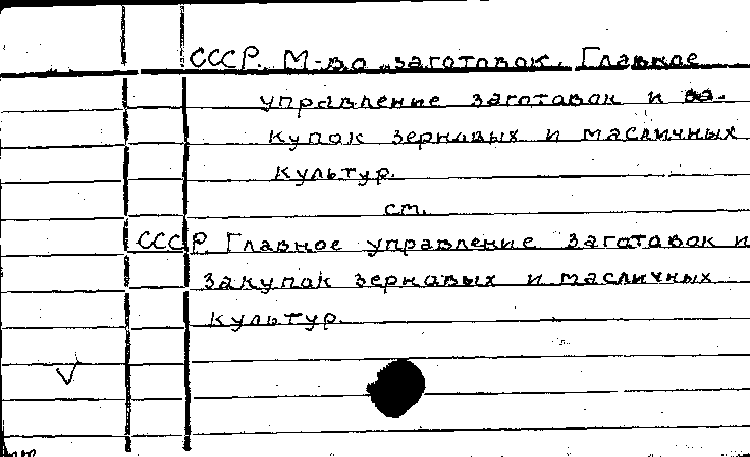 СССР. М-во заготовок. Главное
управление заготовок и за-
купок зерновых и масличных
культур.
см.
СССР. Главное управление заготовок и
закупок зерновых и масличных
культур.